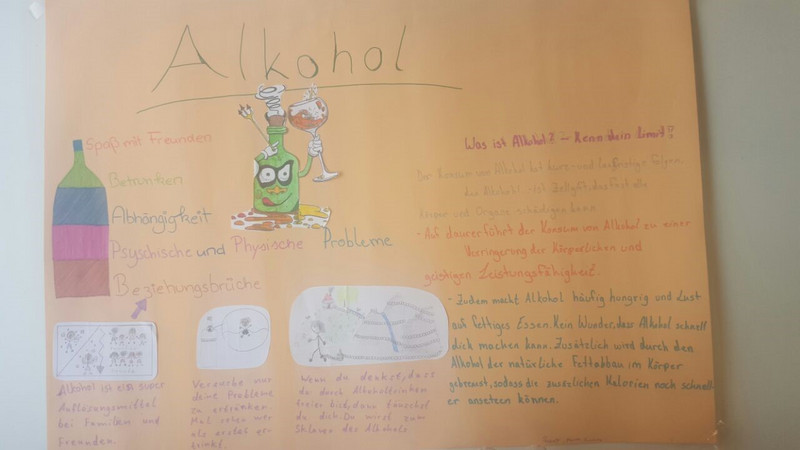 Alkohol
Spaß mit Freunden
Betrunken
Abhängigkeit
Psyschische und Physische Probleme
Beziehungsbrüche
Alkohol ist ein super
Auflösungsmittel
bei Familien und
Freunden.
Versuche nur
deine Probleme
zu ertränken
Mal sehen wer
als erstes er-
trinkt.
Wenn du denkst, dass
du durch Alkoholtrinken
freier bist, dann täuschst
du dich. Du wirst zum
Sklaven des Alkohols
Was ist Alkohol? - Kenn dein Limit?
Der Konsum von Alkohol hat kurz- und langfristige Folgen.
das Alkohol ist Zellgift, das fast alle
Körper und Organe schädigen kann.
- Auf dauer führt der Konsum von Alkohol zu einer
Verringerung der Körperlichen und
geistigen Leistungsfähigkeit.
- Zudem macht Alkohol häufig hungrig und Lust
auf fettiges Essen. Kein Wunder, dass Alkohol schnell
dick machen kann. Zusätzlich wird durch den
Alkohol der natürliche Fettabbau im Körper
gebremst, sodass die zusätzlichen Kalorien noch schnell
er ansetzen können.